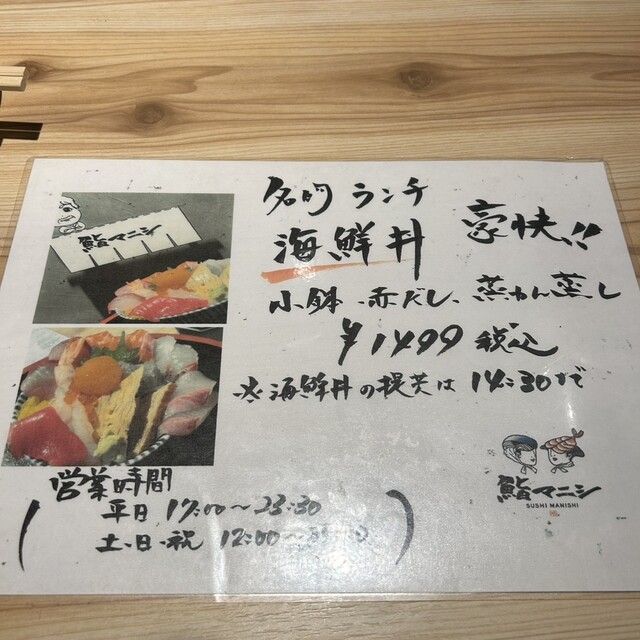 鮨マニシ
名的 ランチ
海鮮丼 豪快!!
小鉢、赤だし、茶わん蒸し
¥1499 税込
※海鮮丼の提供は14:30まで
営業時間
平日 17:00〜23:30
土・日・祝 12:00〜
鮨マニシ
SUSHI MANISHI